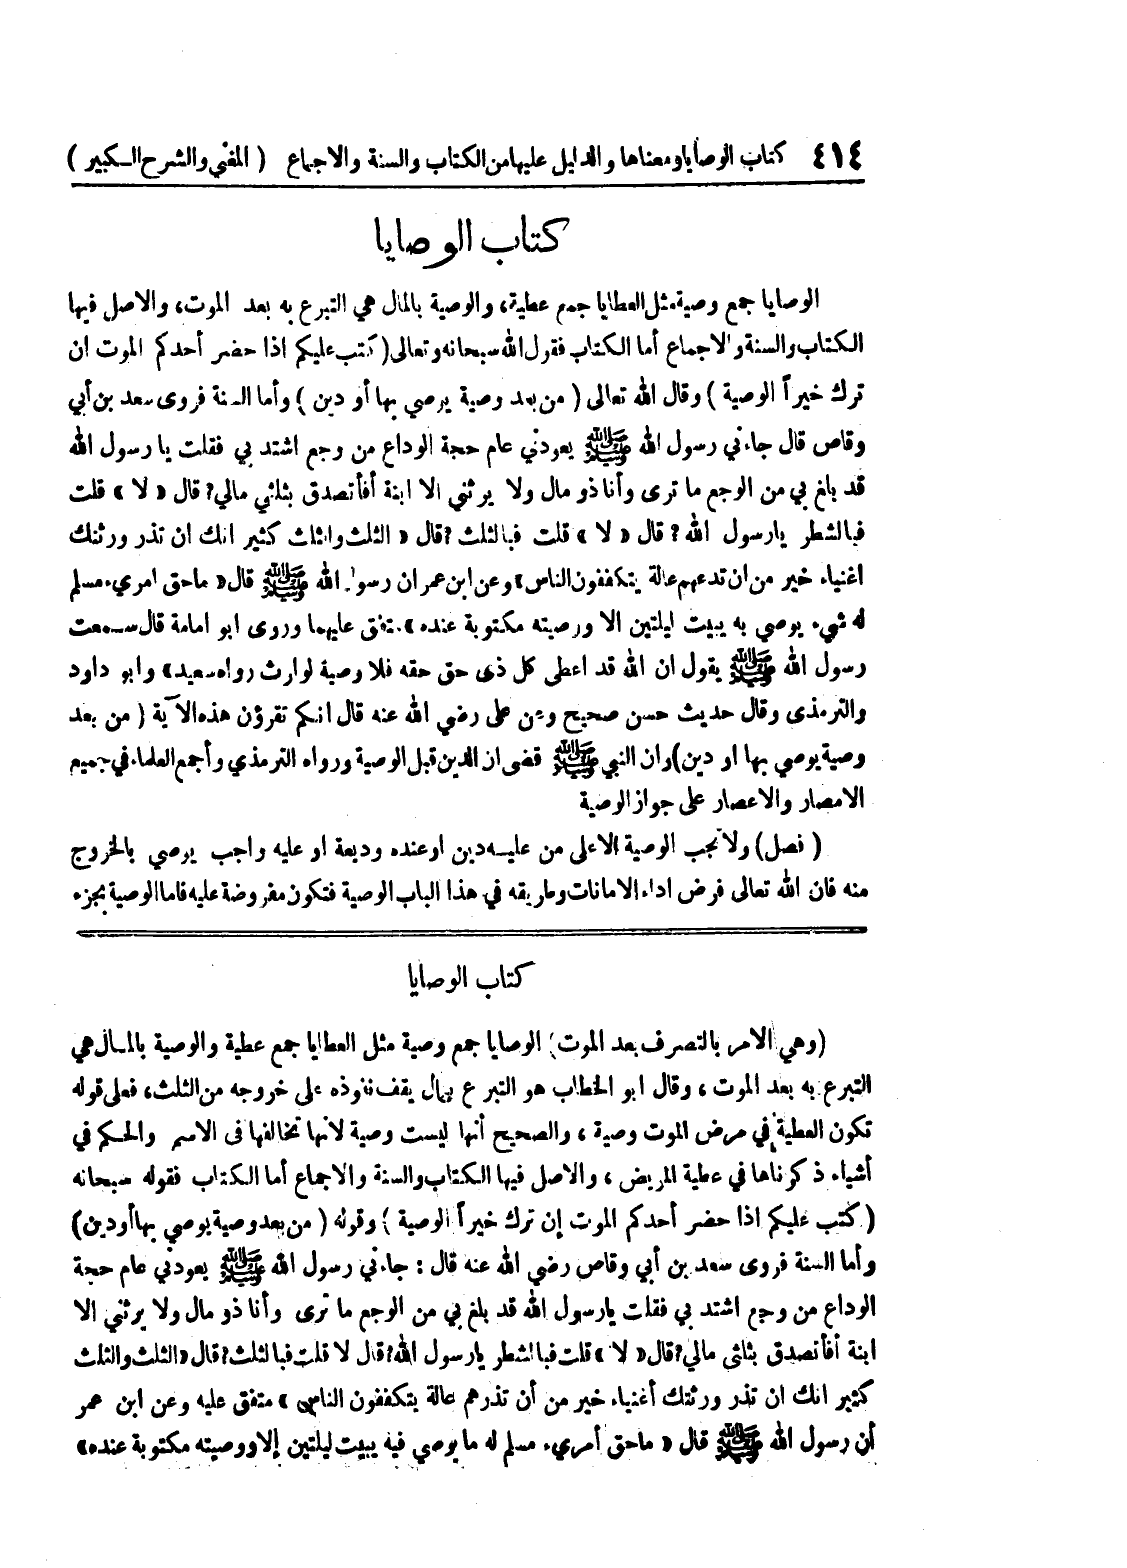 ٤١٤ كتاب الوصايا ومعناها والدليل عليها من الكتاب والسنة والاجماع ( المغني والشرح الكبير )
كتاب الوصايا
الوصايا جمع وصية مثل العطايا جمع عطية، والوصية بالمال هي التبرع به بعد الموت، والاصل فيها
الكتاب والسنة والاجماع أما الكتاب فقول الله سبحانه وتعالى ( كتب عليكم اذا حضر أحدكم الموت ان
ترك خيراً الوصية ) وقال الله تعالى ( من بعد وصية يوصي بها أو دين ) وأما السنة فروى سعد بن أبي
وقاص قال جاءني رسول الله ﷺ يعودني عام حجة الوداع من وجع اشتد بي فقلت يا رسول الله
قد بلغ بي من الوجع ما ترى وأنا ذو مال ولا يرثني الا ابنة أفأتصدق بثلثي مالي؟ قال « لا » قلت
فبالشطر يارسول الله ؟ قال « لا » قلت فبالثلث ؟ قال « الثلث والثلث كثير انك ان تذر ورثتك
اغنياء خير من ان تدعهم عالة يتكففون الناس » وعن ابن عمر ان رسول الله ﷺ قال « ماحق امريء مسلم
له شيء يوصي به يبيت ليلتين الا ووصيته مكتوبة عنده » متفق عليهما وروى ابو امامة قال سمعت
رسول الله ﷺ يقول ان الله قد اعطى كل ذى حق حقه فلا وصية لوارث رواه سعيد » وابو داود
والترمذى وقال حديث حسن صحيح وعن على رضي الله عنه قال انكم تقرؤن هذه الآية ( من بعد
وصية يوصي بها او دين ) وان النبي ﷺ قضى ان الدين قبل الوصية ورواه الترمذي وأجمع العلماء في جميع
الامصار والاعصار على جواز الوصية
( فصل ) ولا تجب الوصية الا على من عليه دين او عنده وديعة او عليه واجب يوصي بالخروج
منه فان الله تعالى فرض اداء الامانات وطريقه في هذا الباب الوصية فتكون مفروضة عليه فاما الوصية بجزء
كتاب الوصايا
(وهي الامر بالتصرف بعد الموت) الوصايا جمع وصية مثل العطايا جمع عطية والوصية بالمال هي
التبرع به بعد الموت ، وقال ابو الخطاب هو التبرع بمال يقف نفوذه على خروجه من الثلث، فعلى قوله
تكون العطية في مرض الموت وصية ، والصحيح أنها ليست وصية لانها تخالفها فى الاسم والحكم في
أشياء ذكرناها في عطية المريض ، والاصل فيها الكتاب والسنة والاجماع أما الكتاب فقوله سبحانه
( كتب عليكم اذا حضر أحدكم الموت إن ترك خيراً الوصية ) وقوله ( من بعد وصية يوصي بها أو دين )
وأما السنة فروى سعد بن أبي وقاص رضي الله عنه قال : جاءني رسول الله ﷺ يعودني عام حجة
الوداع من وجع اشتد بي فقلت يارسول الله قد بلغ بي من الوجع ما ترى وأنا ذو مال ولا يرثني الا
ابنة أفأتصدق بثلثى مالي؟ قال « لا » قلت فبالشطر يارسول الله؟ قال لا قلت فبالثلث؟ قال « الثلث والثلث
كثير انك ان تذر ورثتك أغنياء خير من أن تذرهم عالة يتكففون الناس » متفق عليه وعن ابن عمر
أن رسول الله ﷺ قال « ماحق أمريء مسلم له ما يوصي فيه يبيت ليلتين إلا ووصيته مكتوبة عنده»